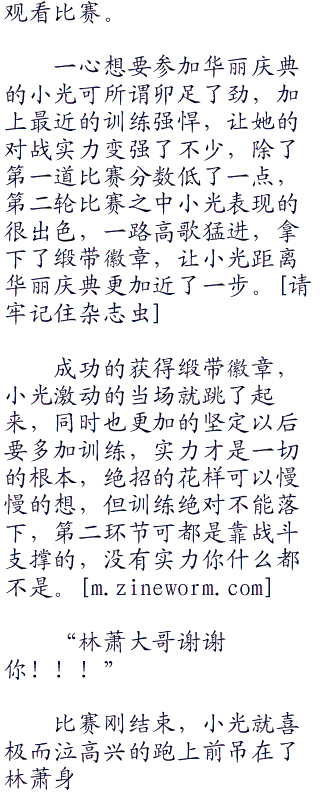 观看比赛。
一心想要参加华丽庆典
的小光可所谓卯足了劲，加
上最近的训练强悍，让她的
对战实力变强了不少，除了
第一道比赛分数低了一点，
第二轮比赛之中小光表现的
很出色，一路高歌猛进，拿
下了缎带徽章，让小光距离
华丽庆典更加近了一步。[请
牢记住杂志虫]
成功的获得缎带徽章，
小光激动的当场就跳了起
来，同时也更加的坚定以后
要多加训练，实力才是一切
的根本，绝招的花样可以慢
慢的想，但训练绝对不能落
下，第二环节可都是靠战斗
支撑的，没有实力你什么都
不是。[m.zineworm.com]
“林萧大哥谢谢
你！！！”
比赛刚结束，小光就喜
极而泣高兴的跑上前吊在了
林萧身